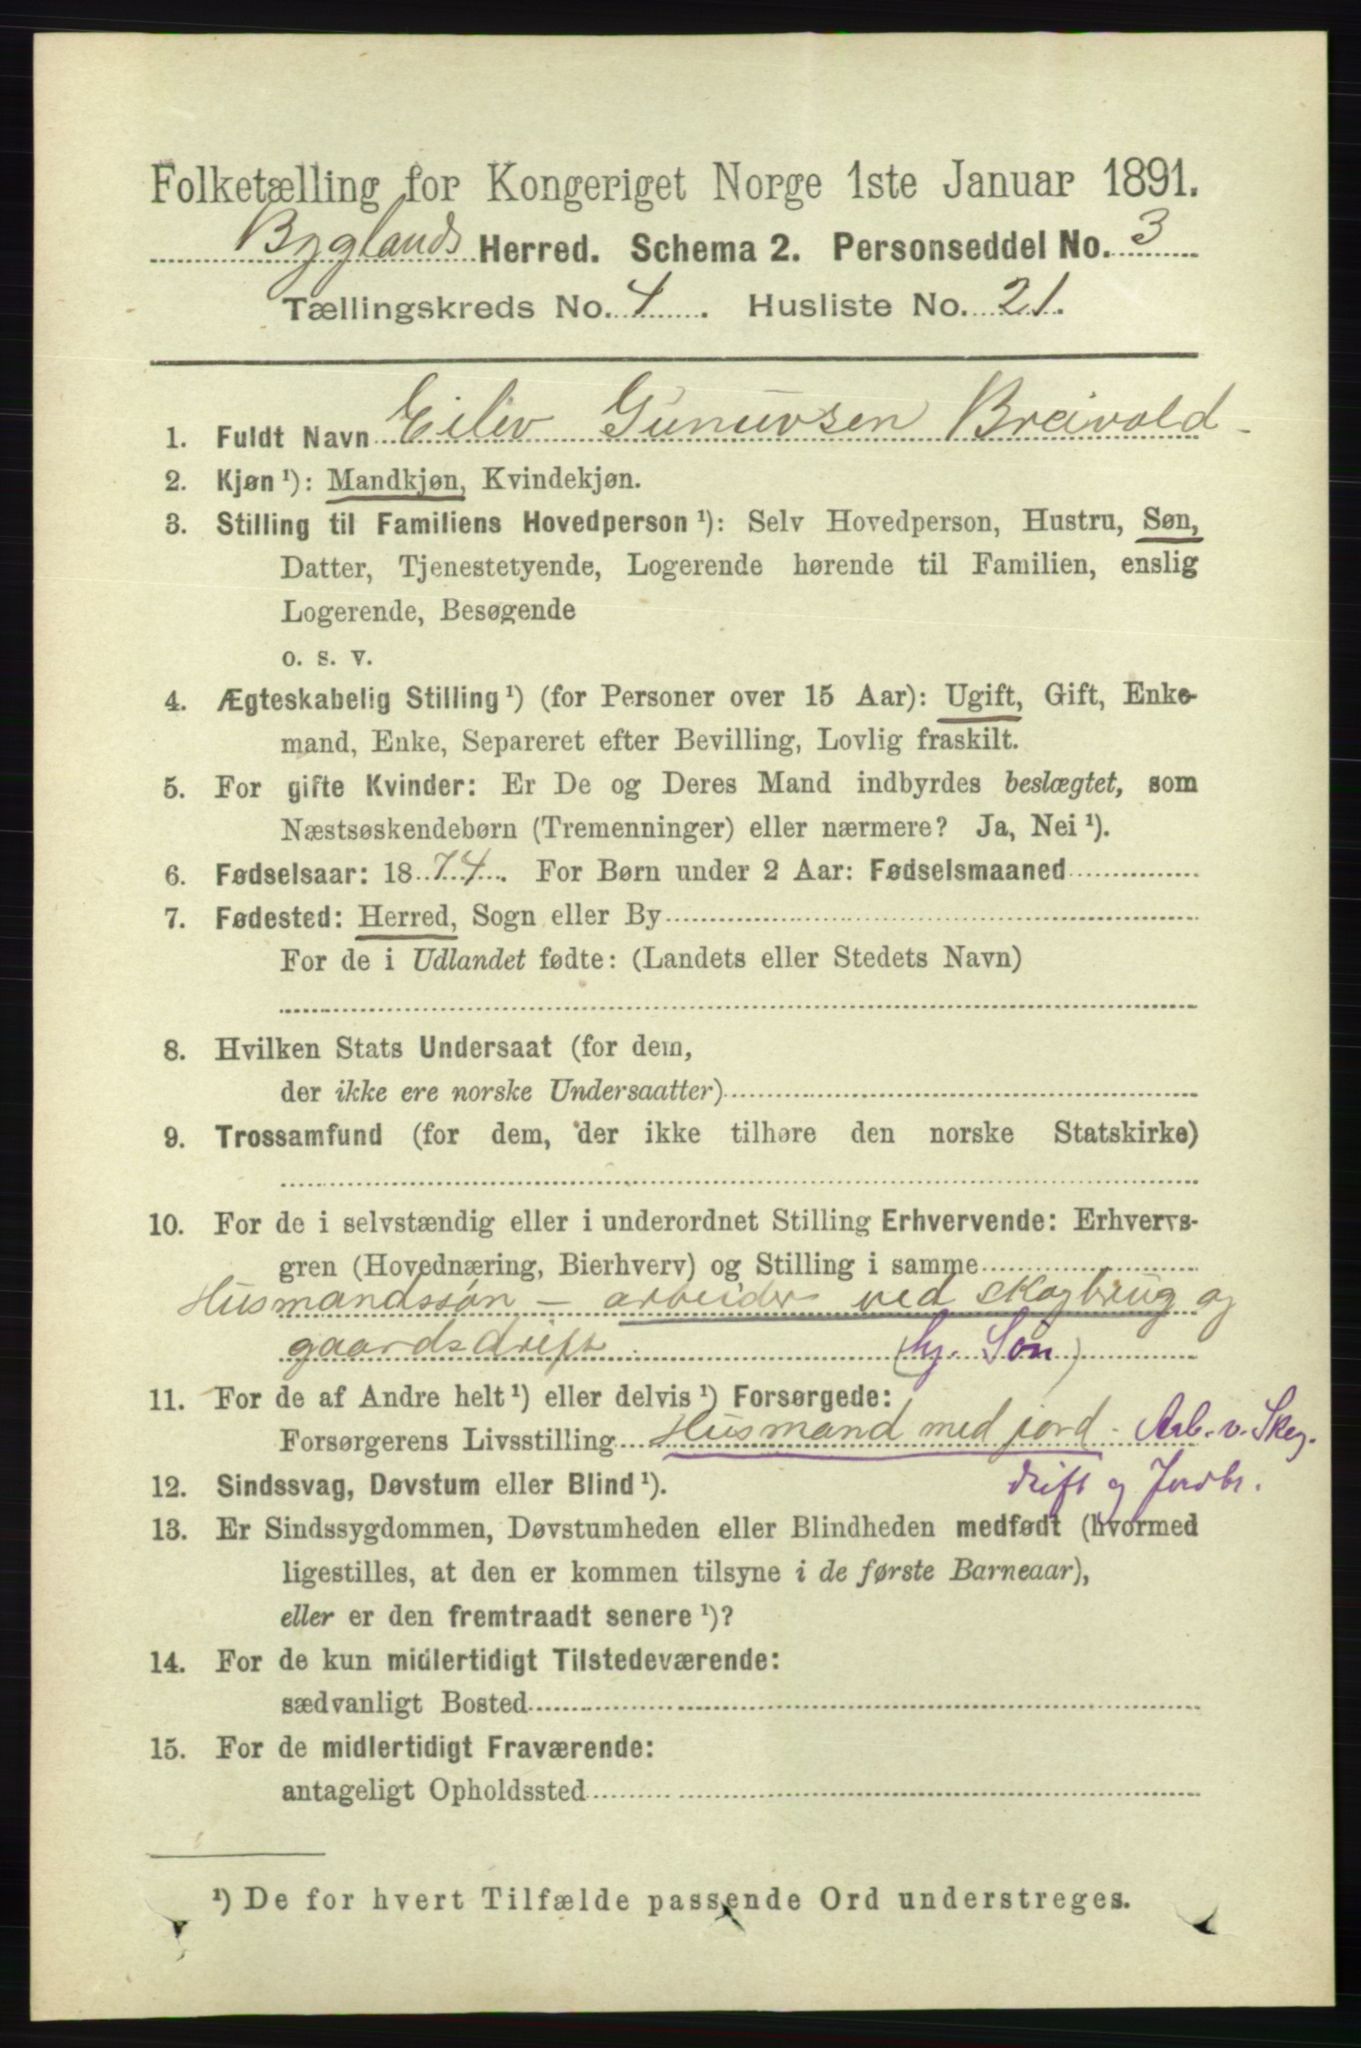 Folketælling for Kongeriget Norge 1ste Januar 1891.
Byglands Herred. Schema 2. Personseddel No. 3
Tællingskreds No. 4. Husliste No. 21.
1. Fuldt Navn Eilev Gunuvsen Breivold
2. Kjøn ¹): Mandkjøn, Kvindekjøn.
3. Stilling til Familiens Hovedperson ¹): Selv Hovedperson, Hustru, Søn,
Datter, Tjenestetyende, Logerende hørende til Familien, enslig
Logerende, Besøgende
o. s. v.
4. Ægteskabelig Stilling ¹) (for Personer over 15 Aar): Ugift, Gift, Enke-
mand, Enke, Separeret efter Bevilling, Lovlig fraskilt.
5. For gifte Kvinder: Er De og Deres Mand indbyrdes beslægtet, som
Næstsøskendebørn (Tremenninger) eller nærmere? Ja, Nei ¹).
6. Fødselsaar: 1874. For Børn under 2 Aar: Fødselsmaaned
7. Fødested: Herred, Sogn eller By
For de i Udlandet fødte: (Landets eller Stedets Navn)
8. Hvilken Stats Undersaat (for dem,
der ikke ere norske Undersaatter)
9. Trossamfund (for dem, der ikke tilhøre den norske Statskirke)
10. For de i selvstændig eller i underordnet Stilling Erhvervende: Erhvervs-
gren (Hovednæring, Bierhverv) og Stilling i samme
Husmandssøn - arbeider ved skogbrug og
gaardsdrift (hj. Søn)
11. For de af Andre helt ¹) eller delvis ¹) Forsørgede:
Forsørgerens Livsstilling Husmand med jord - Arb. v. Skog.
drift og Jordbr.
12. Sindssvag, Døvstum eller Blind ¹).
13. Er Sindssygdommen, Døvstumheden eller Blindheden medfødt (hvormed
ligestilles, at den er kommen tilsyne i de første Barneaar),
eller er den fremtraadt senere ¹)?
14. For de kun midlertidigt Tilstedeværende:
sædvanligt Bosted
15. For de midlertidigt Fraværende:
antageligt Opholdssted
¹) De for hvert Tilfælde passende Ord understreges.